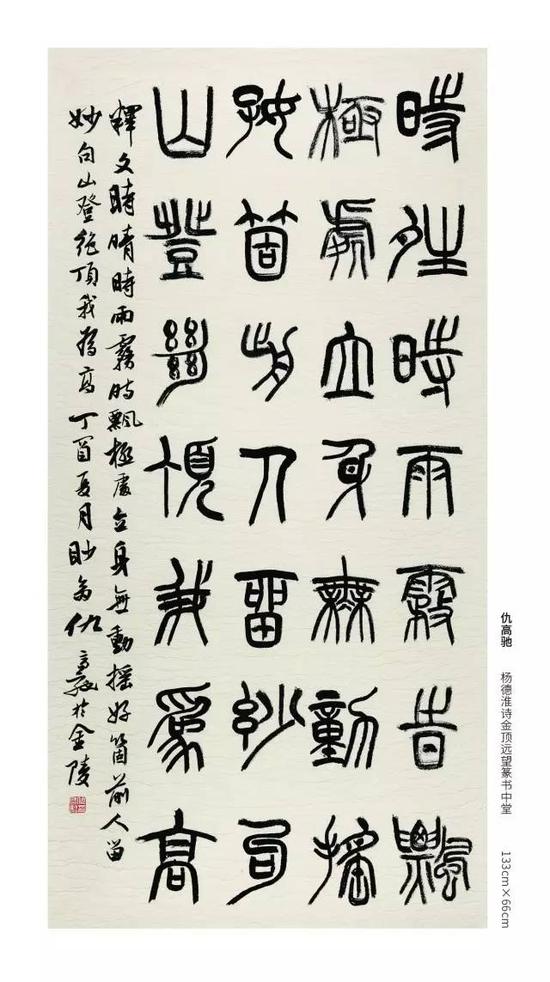 時晴時雨霧時飄
極處立身無動搖
好箇前人留妙句
山登絕頂我為高
釋文時晴時雨霧時飄極處立身無動搖好箇前人留
妙句山登絕頂我為高丁酉夏月仇高馳於金陵
仇高驰 杨德淮诗金顶远望篆书中堂 133cm×66cm